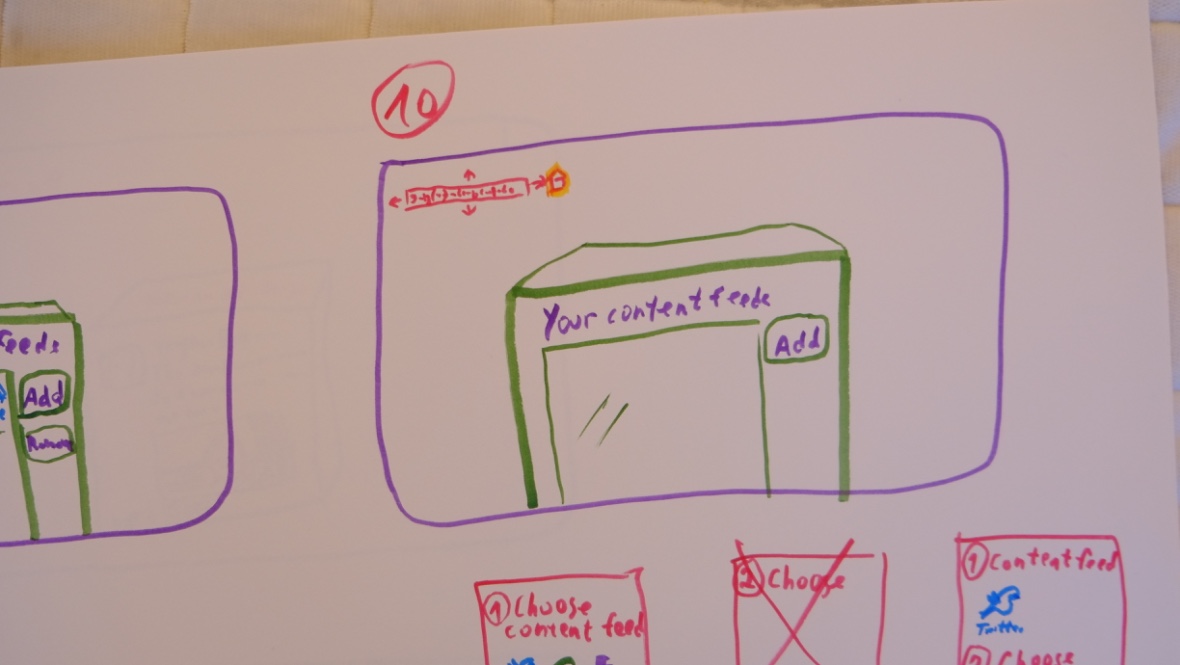 10
Your content feeds
Add
feeds
Add
Remove
1 Choose
content feed
2 Choose
1 Content feed
Twitter
2 Choose